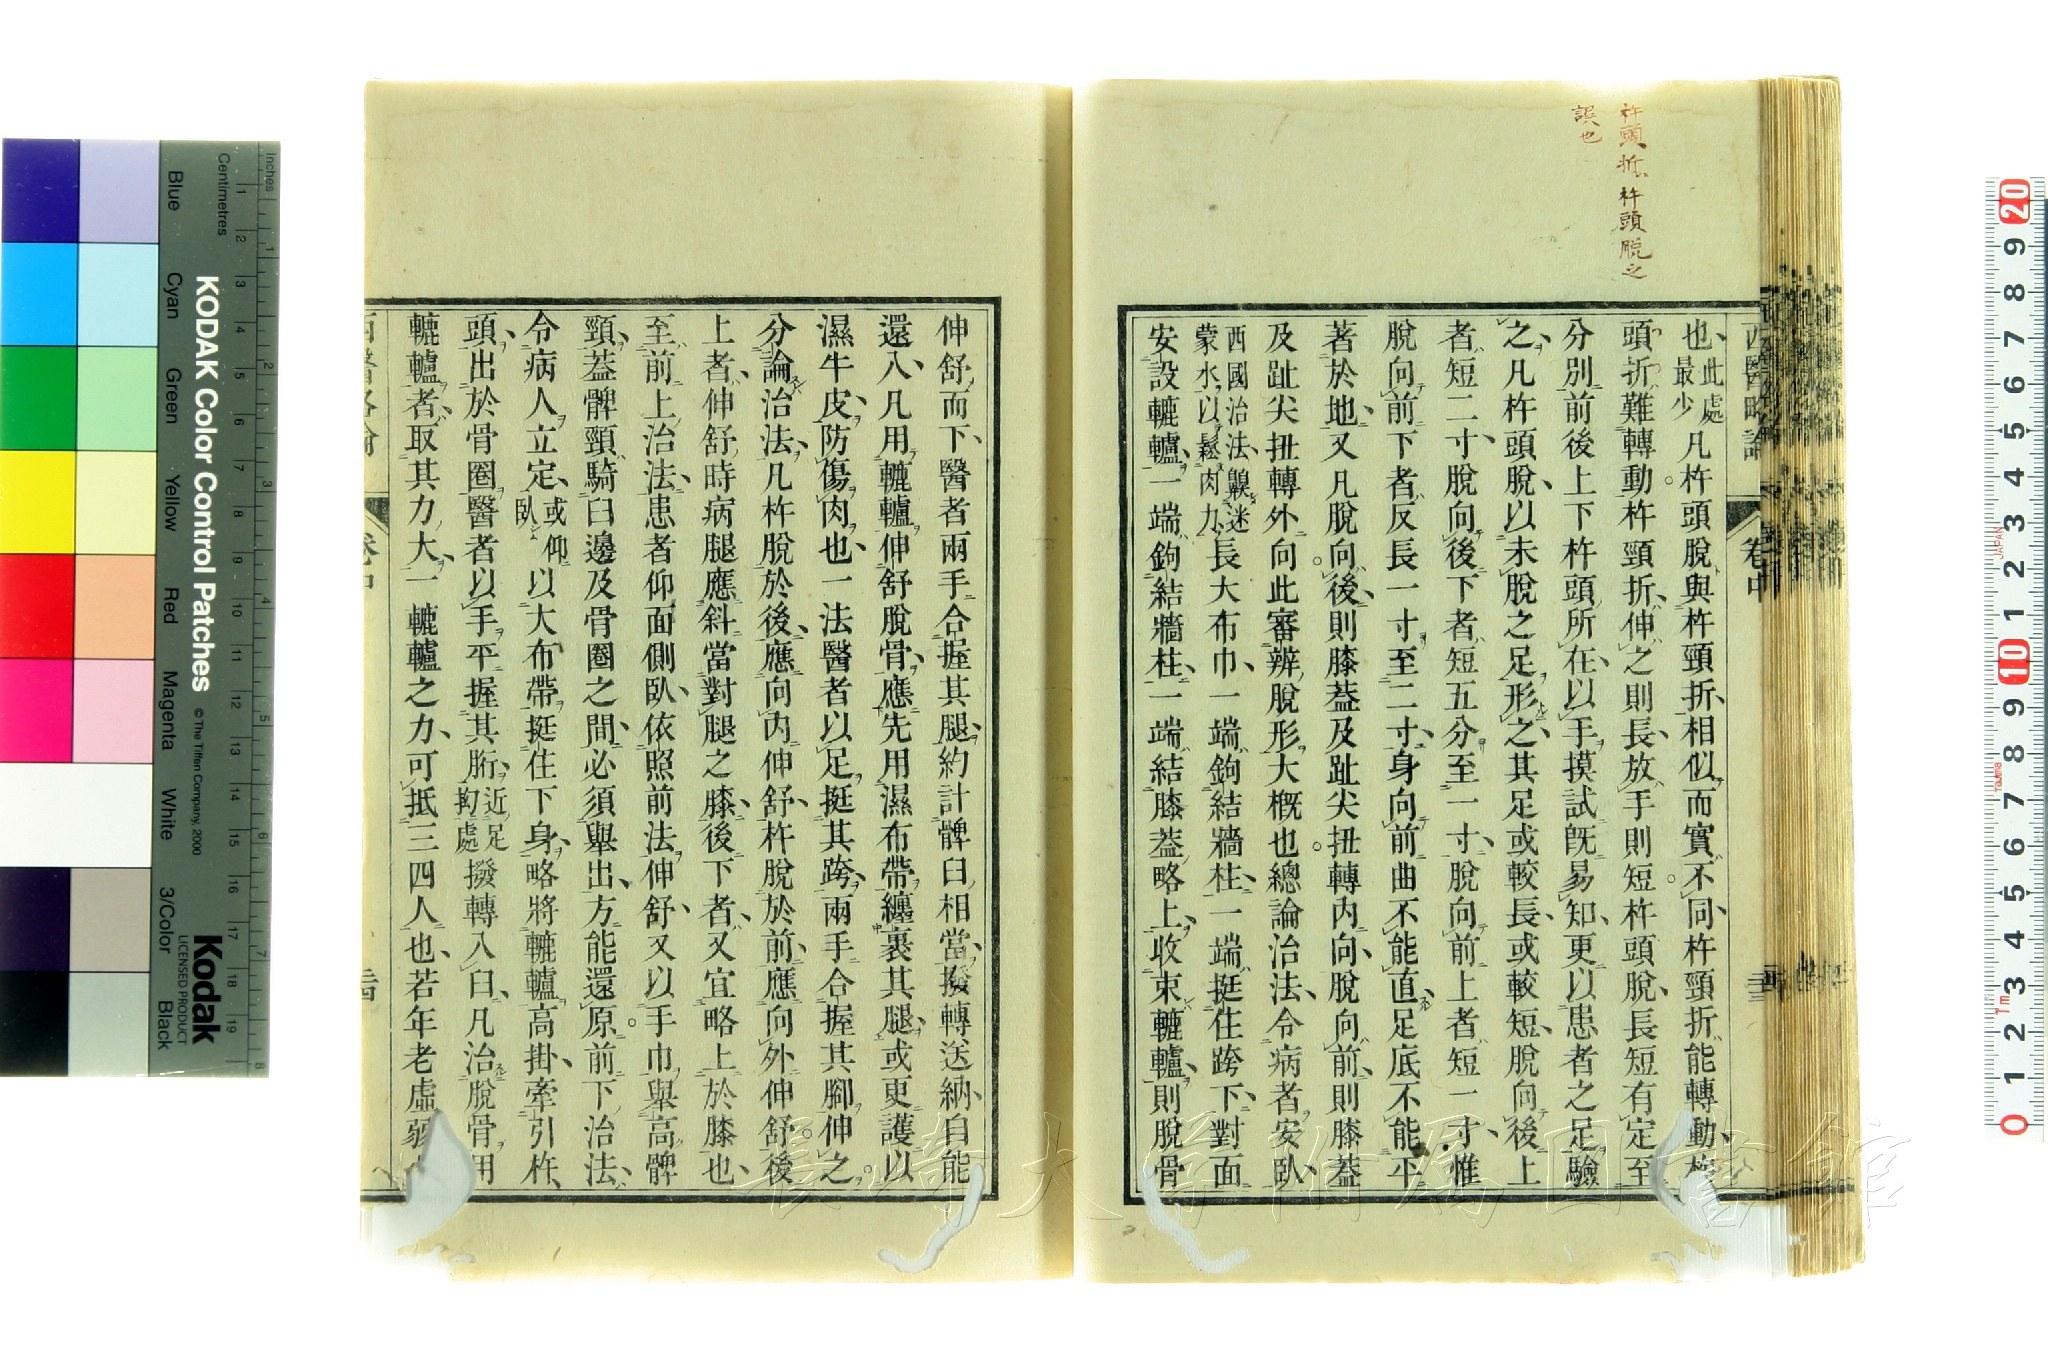 杵頭折杵頭脫之
誤也
西醫略論 卷中
也此處最少凡杵頭脫與杵頸折相似而實不同杵頸折能轉動杵
頭折難轉動杵頸折伸之則長放手則短杵頭脫長短有定至
分別前後上下杵頭所在以手摸試旣易知更以患者之足驗
之凡杵頭脫以未脫之足形之其足或較長或較短脫向後上
者短二寸脫向後下者短五分至一寸脫向前上者短一寸惟
脫向前下者反長一寸至二寸身向前曲不能直足底不能平
著於地又凡脫向後則膝葢及趾尖扭轉內向脫向前則膝葢
及趾尖扭轉外向此審辨脫形大槪也總論治法令病者安臥
西國治法齅迷蒙水以鬆肉力長大布巾一端鉤結牆柱一端挺住跨下對面
安設轆轤一端鉤結牆柱一端結膝葢略上收束轆轤則脫骨
伸舒而下醫者兩手合握其腿約計髀臼相當撥轉送納自能
還入凡用轆轤伸舒脫骨應先用濕布帶纏裹其腿或更護以
濕牛皮防傷肉也一法醫者以足挺其跨兩手合握其腳伸之
分論治法凡杵脫於後應向內伸舒杵脫於前應向外伸舒後
上者伸舒時病腿應斜當對腿之膝後下者又宜略上於膝也
至前上治法患者仰面側臥依照前法伸舒又以手巾舉高髀
頸葢髀頸騎臼邊及骨圈之間必須舉出方能還原前下治法
令病人立定或仰臥以大布帶挺住下身略將轆轤高掛牽引杵
頭出於骨圈醫者以手平握其胻近足拘處撥轉入臼凡治脫骨用
轆轤者取其力大一轆轤之力可抵三四人也若年老虛弱
西醫略論 卷中
長崎大学附属図書館
KODAK Color Control Patches
© The Tiffen Company, 2000
Kodak
LICENSED PRODUCT
Inches
Centimetres
Blue
Cyan
Green
Yellow
Red
Magenta
White
3/Color
Black
1 2 3 4 5 6 7 8
1 2 3 4 5 6 7 8 9 10 11 12 13 14 15 16 17 18 19
0 1 2 3 4 5 6 7 8 9 10 1 2 3 4 5 6 7 8 9 20